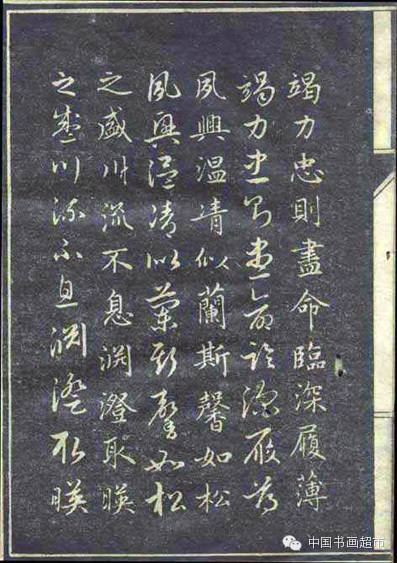 竭力忠則盡命臨深履薄
竭力忠則盡命臨深履薄
夙興温凊似蘭斯馨如松
夙興温凊似蘭斯馨如松
之盛川流不息渕澄取暎
之盛川流不息渕澄取暎
中国书画超市